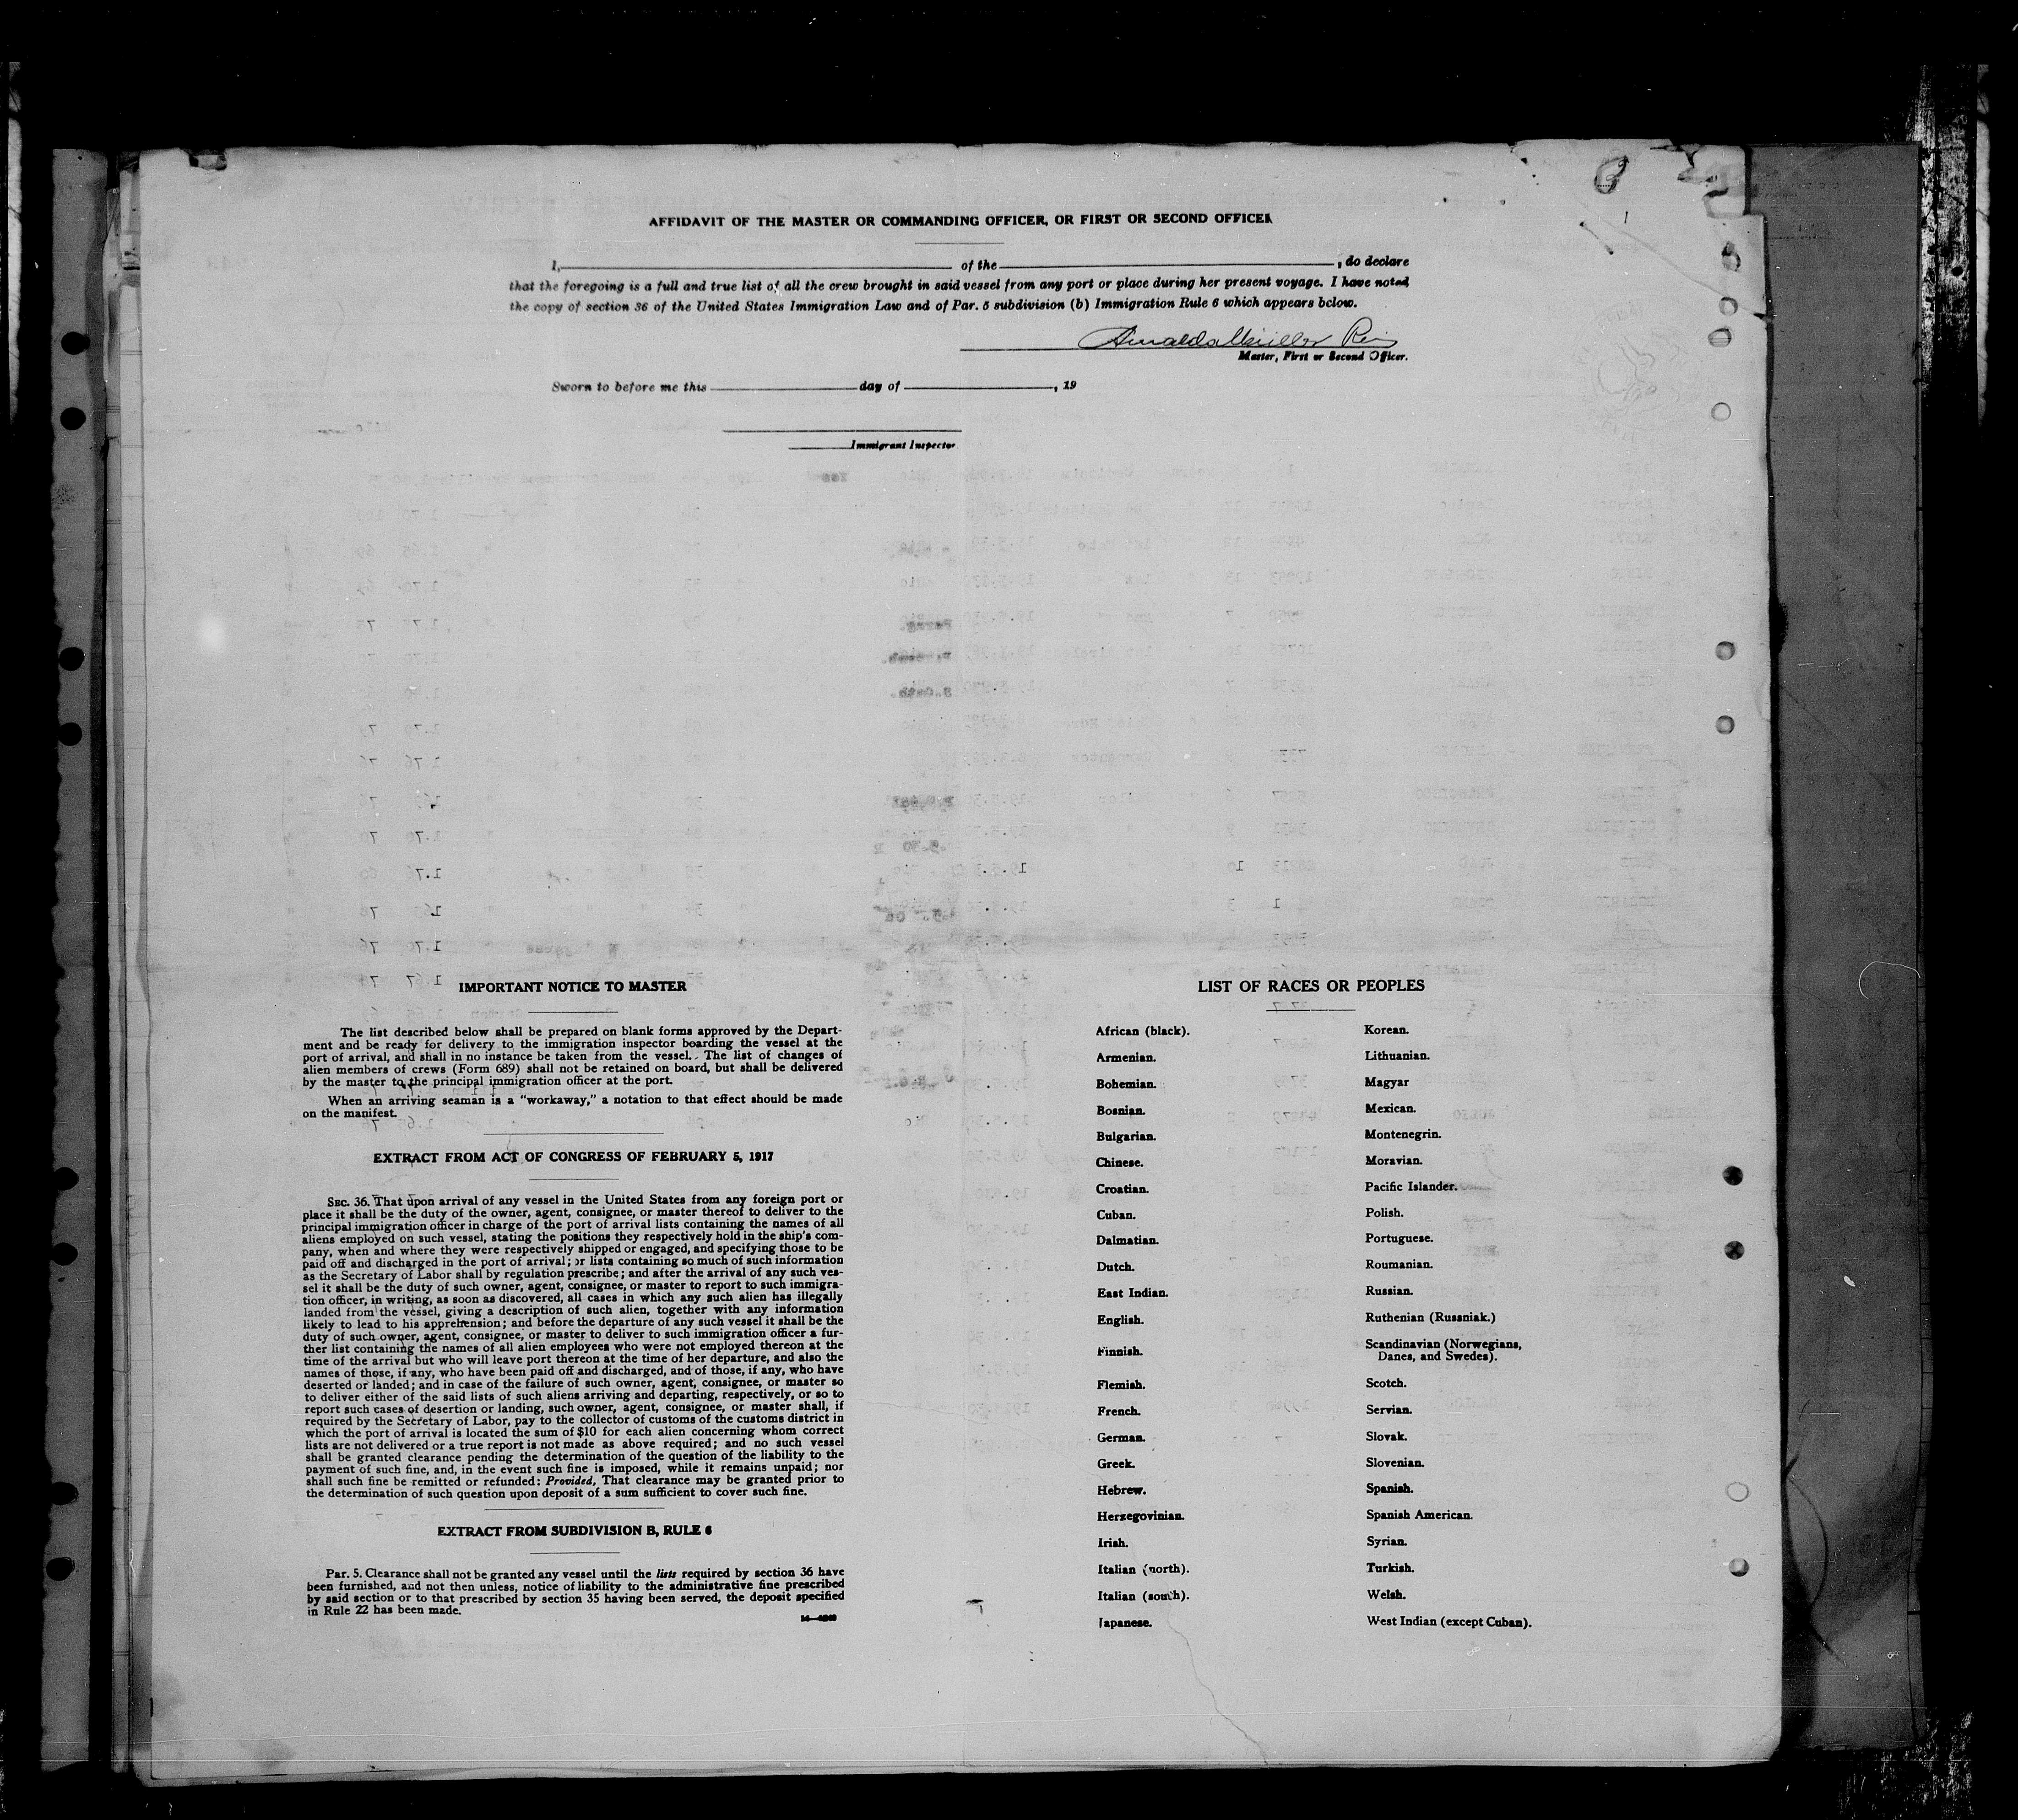 AFFIDAVIT OF THE MASTER OR COMMANDING OFFICER, OR FIRST OR SECOND OFFICER
I, of the , do declare
that the foregoing is a full and true list of all the crew brought in said vessel from any port or place during her present voyage. I have noted
the copy of section 36 of the United States Immigration Law and of Par. 5 subdivision (b) Immigration Rule 6 which appears below.
Master, First or Second Officer.
Sworn to before me this day of , 19
Immigrant Inspector
IMPORTANT NOTICE TO MASTER
The list described below shall be prepared on blank forms approved by the Depart-
ment and be ready for delivery to the immigration inspector boarding the vessel at the
port of arrival, and shall in no instance be taken from the vessel. The list of changes of
alien members of crews (Form 689) shall not be retained on board, but shall be delivered
by the master to the principal immigration officer at the port.
When an arriving seaman is a "workaway," a notation to that effect should be made
on the manifest.
EXTRACT FROM ACT OF CONGRESS OF FEBRUARY 5, 1917
SEC. 36. That upon arrival of any vessel in the United States from any foreign port or
place it shall be the duty of the owner, agent, consignee, or master thereof to deliver to the
principal immigration officer in charge of the port of arrival lists containing the names of all
aliens employed on such vessel, stating the positions they respectively hold in the ship's com-
pany, when and where they were respectively shipped or engaged, and specifying those to be
paid off and discharged in the port of arrival; or lists containing so much of such information
as the Secretary of Labor shall by regulation prescribe; and after the arrival of any such ves-
sel it shall be the duty of such owner, agent, consignee, or master to report to such immigra-
tion officer, in writing, as soon as discovered, all cases in which any such alien has illegally
landed from the vessel, giving a description of such alien, together with any information
likely to lead to his apprehension; and before the departure of any such vessel it shall be the
duty of such owner, agent, consignee, or master to deliver to such immigration officer a fur-
ther list containing the names of all alien employees who were not employed thereon at the
time of the arrival but who will leave port thereon at the time of her departure, and also the
names of those, if any, who have been paid off and discharged, and of those, if any, who have
deserted or landed; and in case of the failure of such owner, agent, consignee, or master so
to deliver either of the said lists of such aliens arriving and departing, respectively, or so to
report such cases of desertion or landing, such owner, agent, consignee, or master shall, if
required by the Secretary of Labor, pay to the collector of customs of the customs district in
which the port of arrival is located the sum of $10 for each alien concerning whom correct
lists are not delivered or a true report is not made as above required; and no such vessel
shall be granted clearance pending the determination of the question of the liability to the
payment of such fine, and, in the event such fine is imposed, while it remains unpaid; nor
shall such fine be remitted or refunded: Provided, That clearance may be granted prior to
the determination of such question upon deposit of a sum sufficient to cover such fine.
EXTRACT FROM SUBDIVISION B, RULE 6
Par. 5. Clearance shall not be granted any vessel until the lists required by section 36 have
been furnished, and not then unless, notice of liability to the administrative fine prescribed
by said section or to that prescribed by section 35 having been served, the deposit specified
in Rule 22 has been made.
LIST OF RACES OR PEOPLES
African (black).
Armenian.
Bohemian.
Bosnian.
Bulgarian.
Chinese.
Croatian.
Cuban.
Dalmatian.
Dutch.
East Indian.
English.
Finnish.
Flemish.
French.
German.
Greek.
Hebrew.
Herzegovinian.
Irish.
Italian (north).
Italian (south).
Japanese.
Korean.
Lithuanian.
Magyar
Mexican.
Montenegrin.
Moravian.
Pacific Islander.
Polish.
Portuguese.
Roumanian.
Russian.
Ruthenian (Russniak.)
Scandinavian (Norwegians,
Danes, and Swedes).
Scotch.
Servian.
Slovak.
Slovenian.
Spanish.
Spanish American.
Syrian.
Turkish.
Welsh.
West Indian (except Cuban).